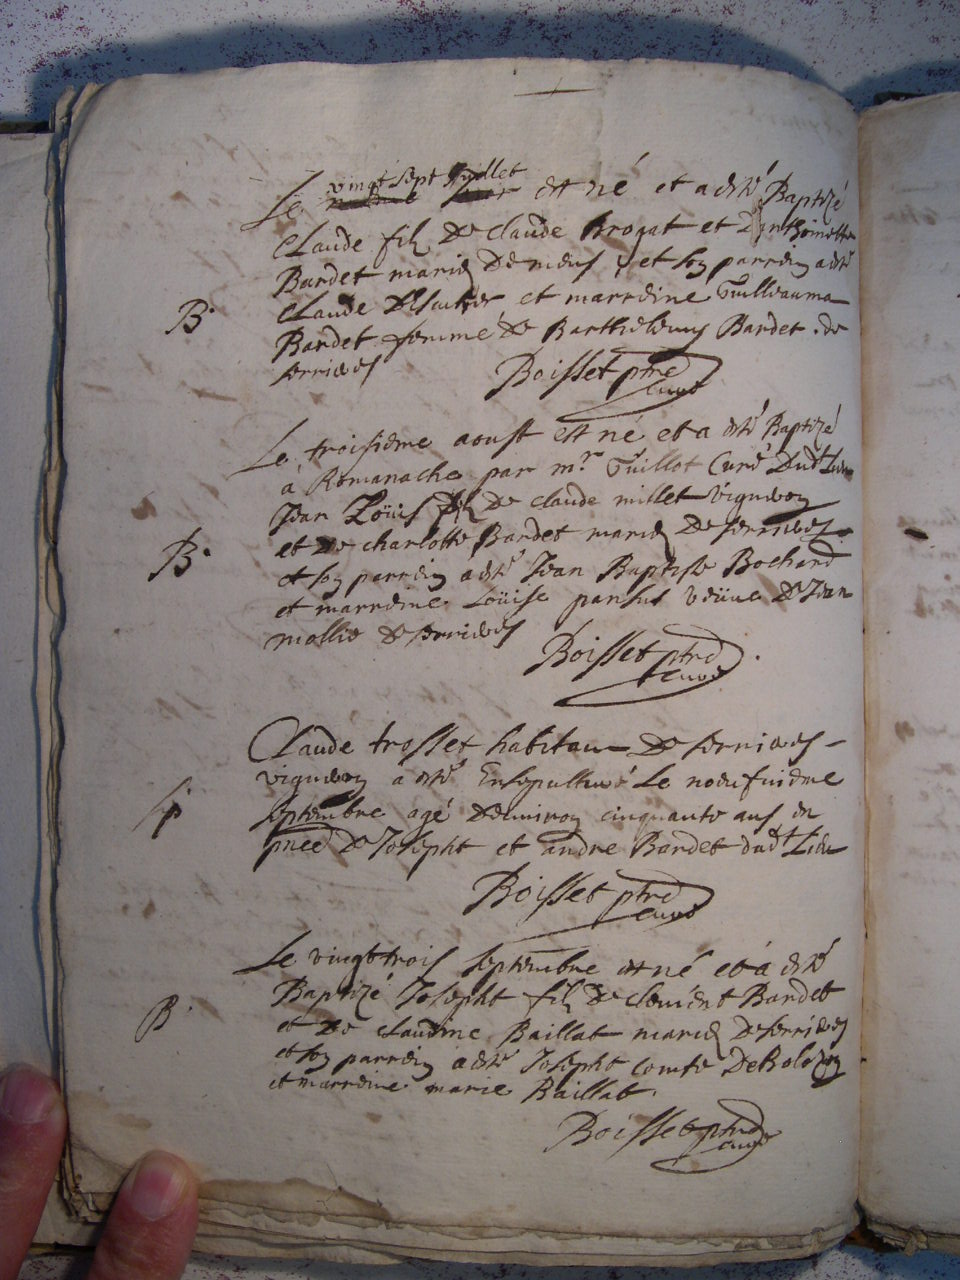 vingt sept Juillet
Le est né et a esté Baptizé
Claude filz de Claude Brogat et Danthoinette
Bardet mariez de meus, et son parrein a esté
B. Claude et marreine Guilleauma
Bardet femme de Barthelemy Bardet de
serrieres
Boisset ptre
curé
Le troisieme aoust est né et a esté Baptizé
a Romanache par mr. Guillot Curé Dudt Lieu
Jean Loüis filz De Claude millet vigneron
B. et De charlotte Bardet mariez De serrieres
et son parrein a esté Jean Baptiste Bochard
et marreine Loüise veüve De Jean
mollie De serrieres
Boisset ptre
curé
Claude trosset habitant De serrieres
vigneron a esté Ensepulturé Le neufuieme
S. septembre agé Denuiron cinquante ans en
pnce De Josepht et andre Bardet dudt Lieu
Boisset ptre
curé
Le vingt trois septembre est né et a esté
Baptizé Josepht filz De clement Bardet
B. et De claudine Baillat mariez De serrieres
et son parrein a esté Josepht comte De Bolozon
et marreine marie Baillat.
Boisset ptre
curé